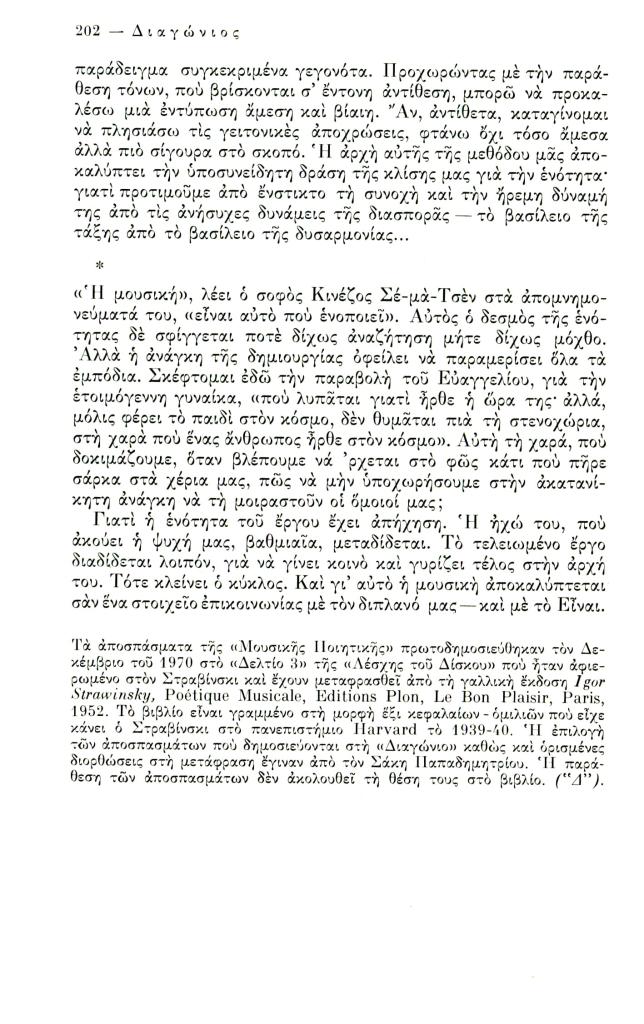 202 — Διαγώνιος
παράδειγμα συγκεκριμένα γεγονότα. Προχωρώντας μὲ τὴν παρά-
θεση τόνων, ποὺ βρίσκονται σ' ἔντονη ἀντίθεση, μπορῶ νὰ προκα-
λέσω μιὰ ἐντύπωση ἄμεση καὶ βίαιη. Ἄν, ἀντίθετα, καταγίνομαι
νὰ πλησιάσω τὶς γειτονικὲς ἀποχρώσεις, φτάνω ὄχι τόσο ἄμεσα
ἀλλὰ πιὸ σίγουρα στὸ σκοπό. Ἡ ἀρχὴ αὐτῆς τῆς μεθόδου μᾶς ἀπο-
καλύπτει τὴν ὑποσυνείδητη δράση τῆς κλίσης μας γιὰ τὴν ἑνότητα·
γιατὶ προτιμοῦμε ἀπὸ ἔνστικτο τὴ συνοχὴ καὶ τὴν ἤρεμη δύναμή
της ἀπὸ τὶς ἀνήσυχες δυνάμεις τῆς διασπορᾶς — τὸ βασίλειο τῆς
τάξης ἀπὸ τὸ βασίλειο τῆς δυσαρμονίας...
*
«Ἡ μουσική», λέει ὁ σοφὸς Κινέζος Σέ-μὰ-Τσὲν στὰ ἀπομνημο-
νεύματά του, «εἶναι αὐτὸ ποὺ ἑνοποιεῖ». Αὐτὸς ὁ δεσμὸς τῆς ἑνό-
τητας δὲ σφίγγεται ποτὲ δίχως ἀναζήτηση μήτε δίχως μόχθο.
Ἀλλὰ ἡ ἀνάγκη τῆς δημιουργίας ὀφείλει νὰ παραμερίσει ὅλα τὰ
ἐμπόδια. Σκέφτομαι ἐδῶ τὴν παραβολὴ τοῦ Εὐαγγελίου, γιὰ τὴν
ἑτοιμόγεννη γυναίκα, «ποὺ λυπᾶται γιατὶ ἦρθε ἡ ὥρα της· ἀλλά,
μόλις φέρει τὸ παιδὶ στὸν κόσμο, δὲν θυμᾶται πιὰ τὴ στενοχώρια,
στὴ χαρὰ ποὺ ἕνας ἄνθρωπος ἦρθε στὸν κόσμο». Αὐτὴ τὴ χαρά, ποὺ
δοκιμάζουμε, ὅταν βλέπουμε νά 'ρχεται στὸ φῶς κάτι ποὺ πῆρε
σάρκα στὰ χέρια μας, πῶς νὰ μὴν ὑποχωρήσουμε στὴν ἀκατανί-
κητη ἀνάγκη νὰ τὴ μοιραστοῦν οἱ ὅμοιοί μας;
Γιατὶ ἡ ἑνότητα τοῦ ἔργου ἔχει ἀπήχηση. Ἡ ἠχώ του, ποὺ
ἀκούει ἡ ψυχή μας, βαθμιαῖα, μεταδίδεται. Τὸ τελειωμένο ἔργο
διαδίδεται λοιπόν, γιὰ νὰ γίνει κοινὸ καὶ γυρίζει τέλος στὴν ἀρχή
του. Τότε κλείνει ὁ κύκλος. Καὶ γι' αὐτὸ ἡ μουσικὴ ἀποκαλύπτεται
σὰν ἕνα στοιχεῖο ἐπικοινωνίας μὲ τὸν διπλανό μας — καὶ μὲ τὸ Εἶναι.
Τὰ ἀποσπάσματα τῆς «Μουσικῆς Ποιητικῆς» πρωτοδημοσιεύθηκαν τὸν Δε-
κέμβριο τοῦ 1970 στὸ «Δελτίο 3» τῆς «Λέσχης τοῦ Δίσκου» ποὺ ἦταν ἀφιε-
ρωμένο στὸν Στραβίνσκι καὶ ἔχουν μεταφρασθεῖ ἀπὸ τὴ γαλλικὴ ἔκδοση Igor
Strawinsky, Poétique Musicale, Editions Plon, Le Bon Plaisir, Paris,
1952. Τὸ βιβλίο εἶναι γραμμένο στὴ μορφὴ ἕξι κεφαλαίων - ὁμιλιῶν ποὺ εἶχε
κάνει ὁ Στραβίνσκι στὸ πανεπιστήμιο Harvard τὸ 1939-40. Ἡ ἐπιλογὴ
τῶν ἀποσπασμάτων ποὺ δημοσιεύονται στὴ «Διαγώνιο» καθὼς καὶ ὁρισμένες
διορθώσεις στὴ μετάφραση ἔγιναν ἀπὸ τὸν Σάκη Παπαδημητρίου. Ἡ παρά-
θεση τῶν ἀποσπασμάτων δὲν ἀκολουθεῖ τὴ θέση τους στὸ βιβλίο. ("Δ").